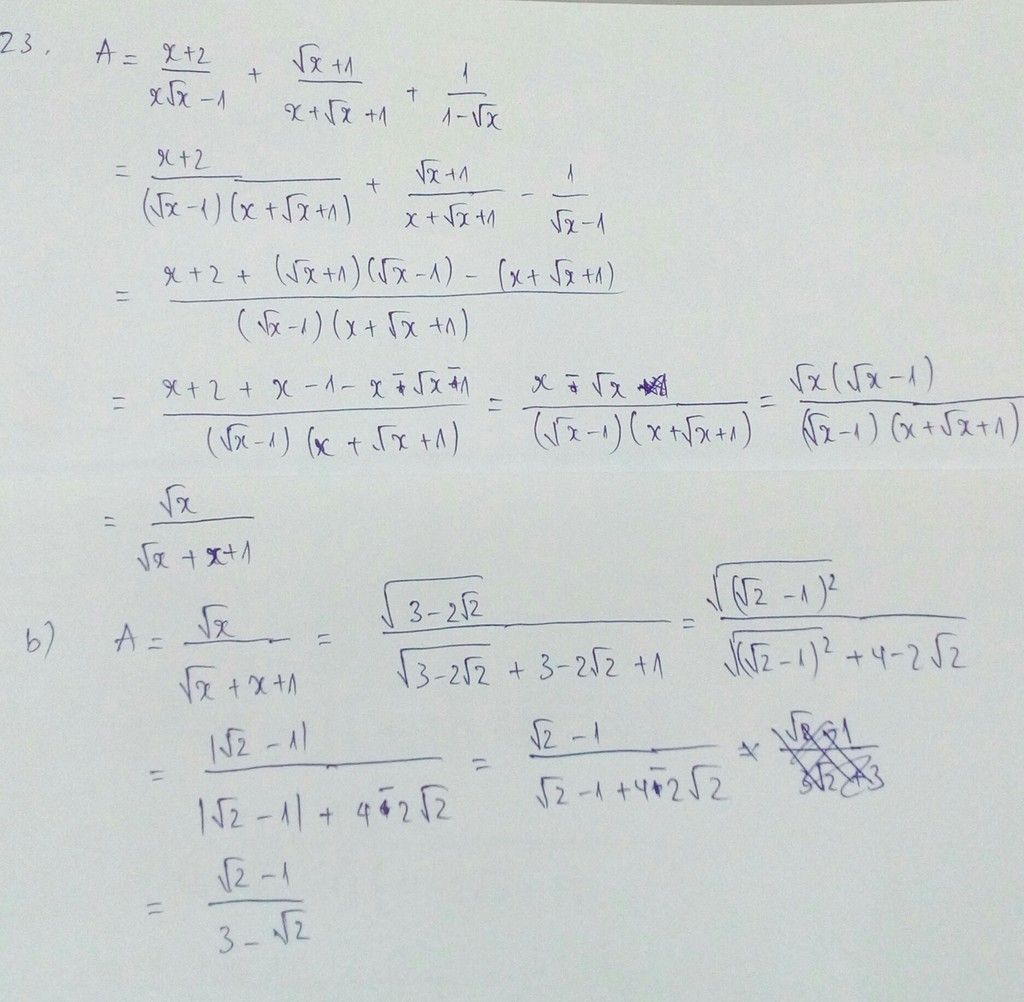 23. A = \frac{x+2}{x\sqrt{x}-1} + \frac{\sqrt{x}+1}{x+\sqrt{x}+1} + \frac{1}{1-\sqrt{x}}
= \frac{x+2}{(\sqrt{x}-1)(x+\sqrt{x}+1)} + \frac{\sqrt{x}+1}{x+\sqrt{x}+1} - \frac{1}{\sqrt{x}-1}
= \frac{x+2+(\sqrt{x}+1)(\sqrt{x}-1)-(x+\sqrt{x}+1)}{(\sqrt{x}-1)(x+\sqrt{x}+1)}
= \frac{x+2+x-1-x-\sqrt{x}-1}{(\sqrt{x}-1)(x+\sqrt{x}+1)} = \frac{x-\sqrt{x}}{(\sqrt{x}-1)(x+\sqrt{x}+1)} = \frac{\sqrt{x}(\sqrt{x}-1)}{(\sqrt{x}-1)(x+\sqrt{x}+1)}
= \frac{\sqrt{x}}{\sqrt{x}+x+1}
b) A = \frac{\sqrt{x}}{\sqrt{x}+x+1} = \frac{\sqrt{3-2\sqrt{2}}}{\sqrt{3-2\sqrt{2}}+3-2\sqrt{2}+1} = \frac{\sqrt{(\sqrt{2}-1)^2}}{\sqrt{(\sqrt{2}-1)^2}+4-2\sqrt{2}}
= \frac{|\sqrt{2}-1|}{|\sqrt{2}-1|+4-2\sqrt{2}} = \frac{\sqrt{2}-1}{\sqrt{2}-1+4-2\sqrt{2}}
= \frac{\sqrt{2}-1}{3-\sqrt{2}}